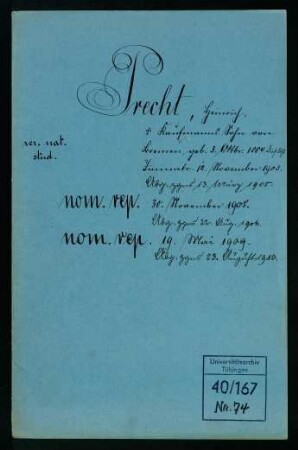 Precht, Heinrich.
rer. nat.
stud.
† Kaufmanns Sohn von
Bremen, geb. 3. Oktbr. 1884
Immatr. 12. November 1903.
Abg. zgns 13. März 1905.
nom. rep. 30. November 1905.
Abg. zgns 22. Aug. 1906.
nom. rep. 19. Mai 1909.
Abg. zgns 23. August 1910.
Universitätsarchiv
Tübingen
40/167
Nr. 74